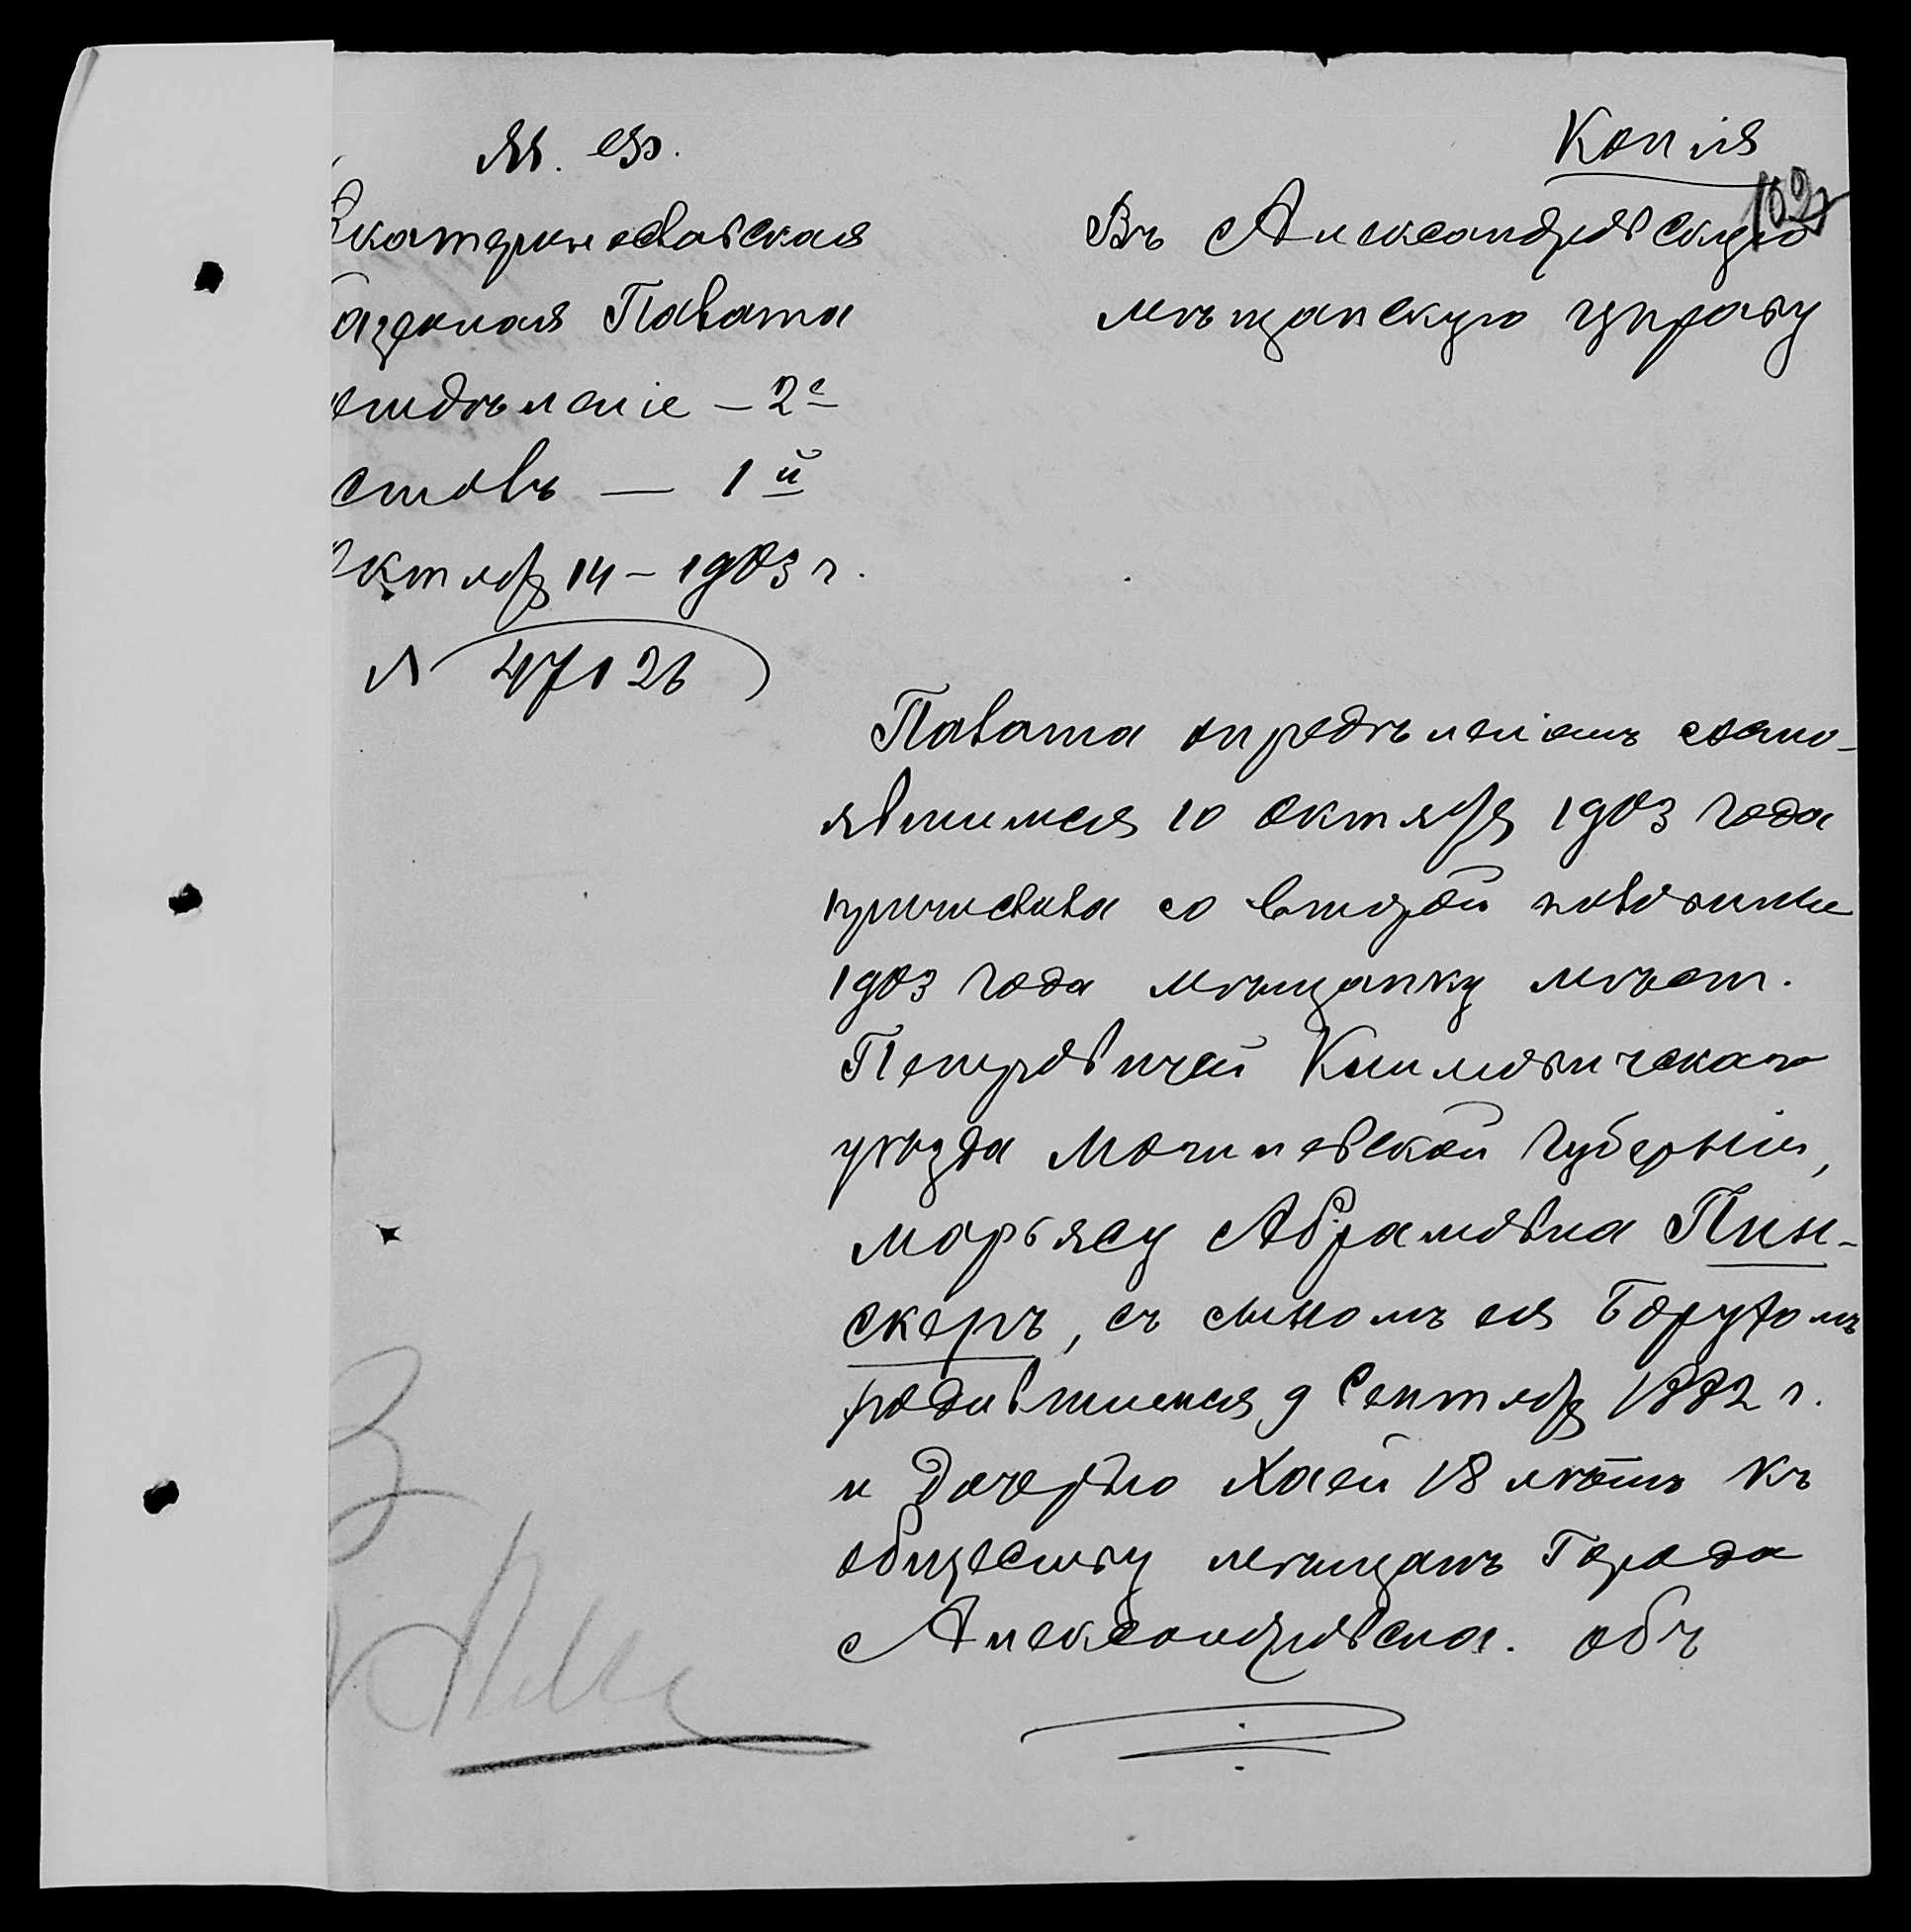 М. Ф.
Екатеринославская
Казенная Палата
отдѣленіе – 2е
столъ — 1й
Октябр 14 – 1903 г.
№ 47126
Копія
102
Въ Александровскую
мѣщанскую управу
Палата опредѣленіемъ состо-
явшимся 10 октября 1903 года
причислила со второй половины
1903 года мѣщанку мѣст.
Петровичей Климовичскаго
уѣзда Могилевской губерніи,
Марьясу Абрамовна Пин-
скеръ, съ сыномъ ея Борухомъ
родившимся 9 Сентябр 1882 г.
и дочерью Хаей 18 лѣтъ къ
обществу мѣщанъ города
Александровска. объ